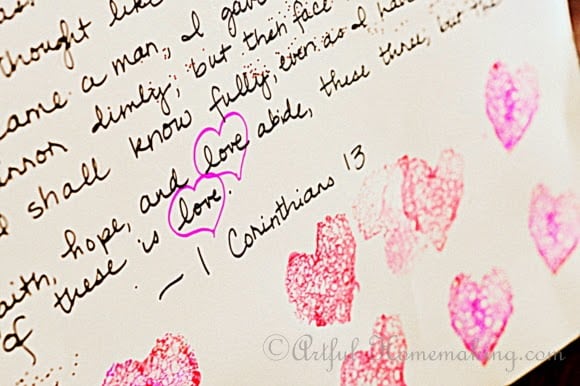 thought like
came a man, I gave
mirror dimly; but then face
I shall know fully, even as I have
faith, hope, and love abide, these three, but the
of these is love.
~ 1 Corinthians 13
© Artful Homemaking.com